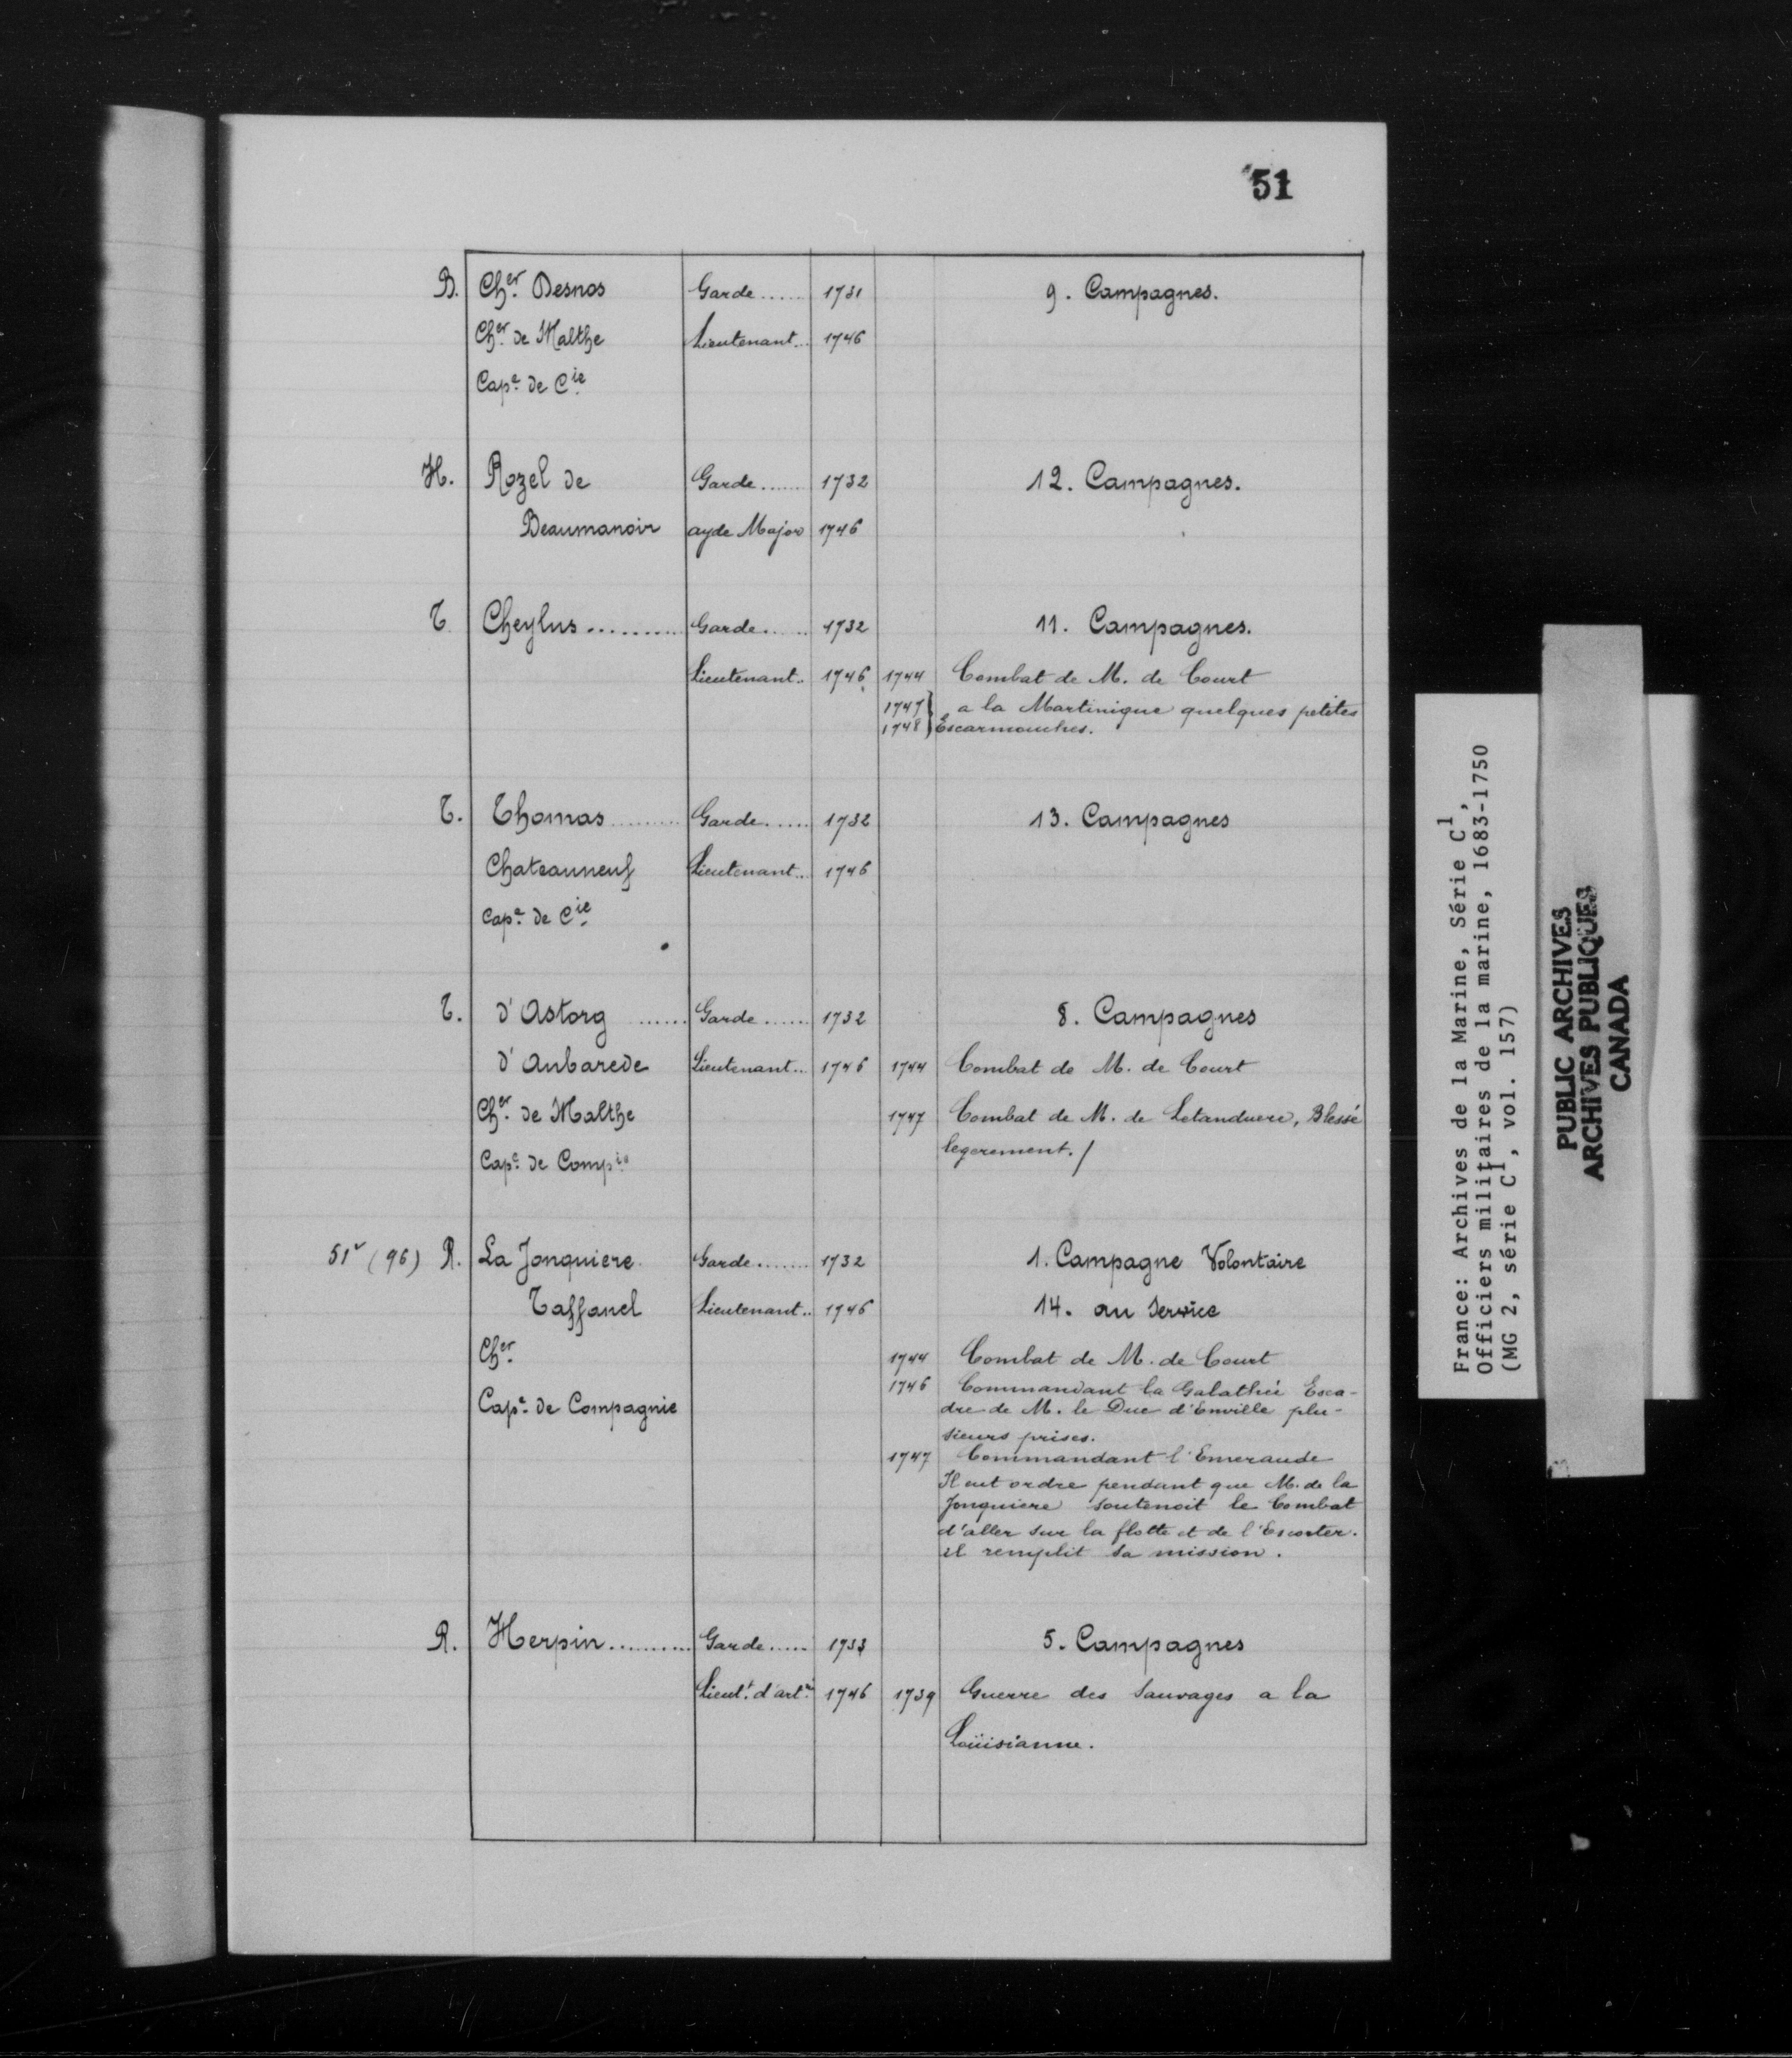 51
B. Cher. Desnos Garde...... 1731 9. Campagnes.
Cher. de Malthe Lieutenant... 1746
Cape. de Cie.
H. Rozel de Garde....... 1732 12. Campagnes.
Beaumanoir ayde Major 1746
T. Cheylus.......... Garde...... 1732 11. Campagnes.
Lieutenant.. 1746 1744 Combat de M. de Court
1747 } a la Martinique quelques petites
1748 } Escarmouches.
T. Thomas.......... Garde...... 1732 13. Campagnes
Chateauneuf Lieutenant.. 1746
Cape. de Cie.
T. d'Astorg ...... Garde...... 1732 8. Campagnes
d'Aubarede Lieutenant... 1746 1744 Combat de M. de Court
Cher. de Malthe 1747 Combat de M. de Letanduere, Blessé
Cape. de Compie. legerement. /
51v (96) R. La Jonquiere Garde....... 1732 1. Campagne Volontaire
Taffanel Lieutenant.. 1746 14. au Service
Cher.
1744 Combat de M. de Court
1746 Commandant la Galathée Esca-
Cape. de Compagnie dre de M. le Duc d'Enville plu-
sieurs prises.
1747 Commandant l'Emeraude
Il eut ordre pendant que M. de la
Jonquiere soutenoit le Combat
d'aller sur la flotte et de l'Escorter.
il remplit sa mission.
R. Herpin.......... Garde..... 1733 5. Campagnes
Lieutt. d'arte. 1746 1739 Guerre des Sauvages a la
Loüisianne.
France: Archives de la Marine, Série C1,
Officiers militaires de la marine, 1683-1750
(MG 2, série C1, vol. 157)
PUBLIC ARCHIVES
ARCHIVES PUBLIQUES
CANADA